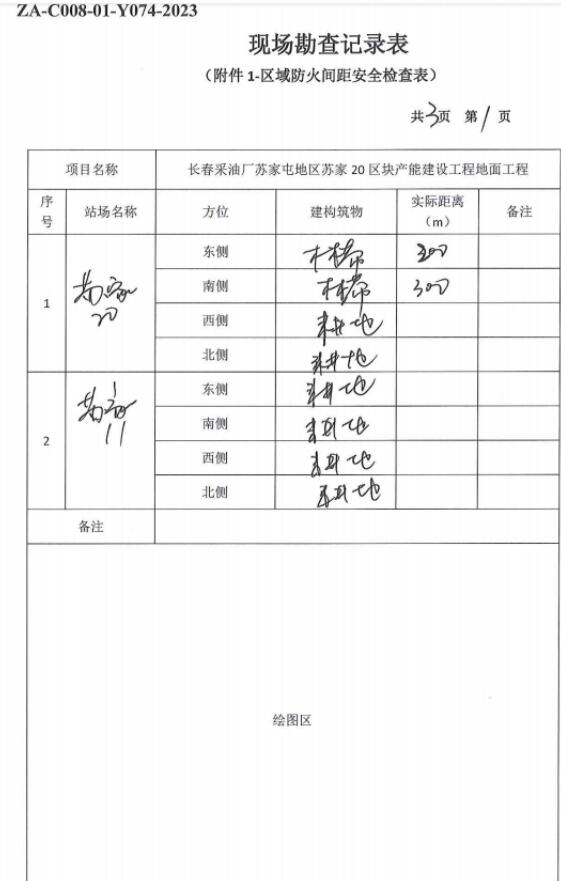 ZA-C008-01-Y074-2023
现场勘查记录表
（附件 1-区域防火间距安全检查表）
共3页 第1页
项目名称 长春采油厂苏家屯地区苏家 20 区块产能建设工程地面工程
序号 站场名称 方位 建构筑物 实际距离（m） 备注
1 苏家20 东侧 林带 300
南侧 林带 300
西侧 耕地
北侧 耕地
2 苏家11 东侧 耕地
南侧 耕地
西侧 耕地
北侧 耕地
备注
绘图区